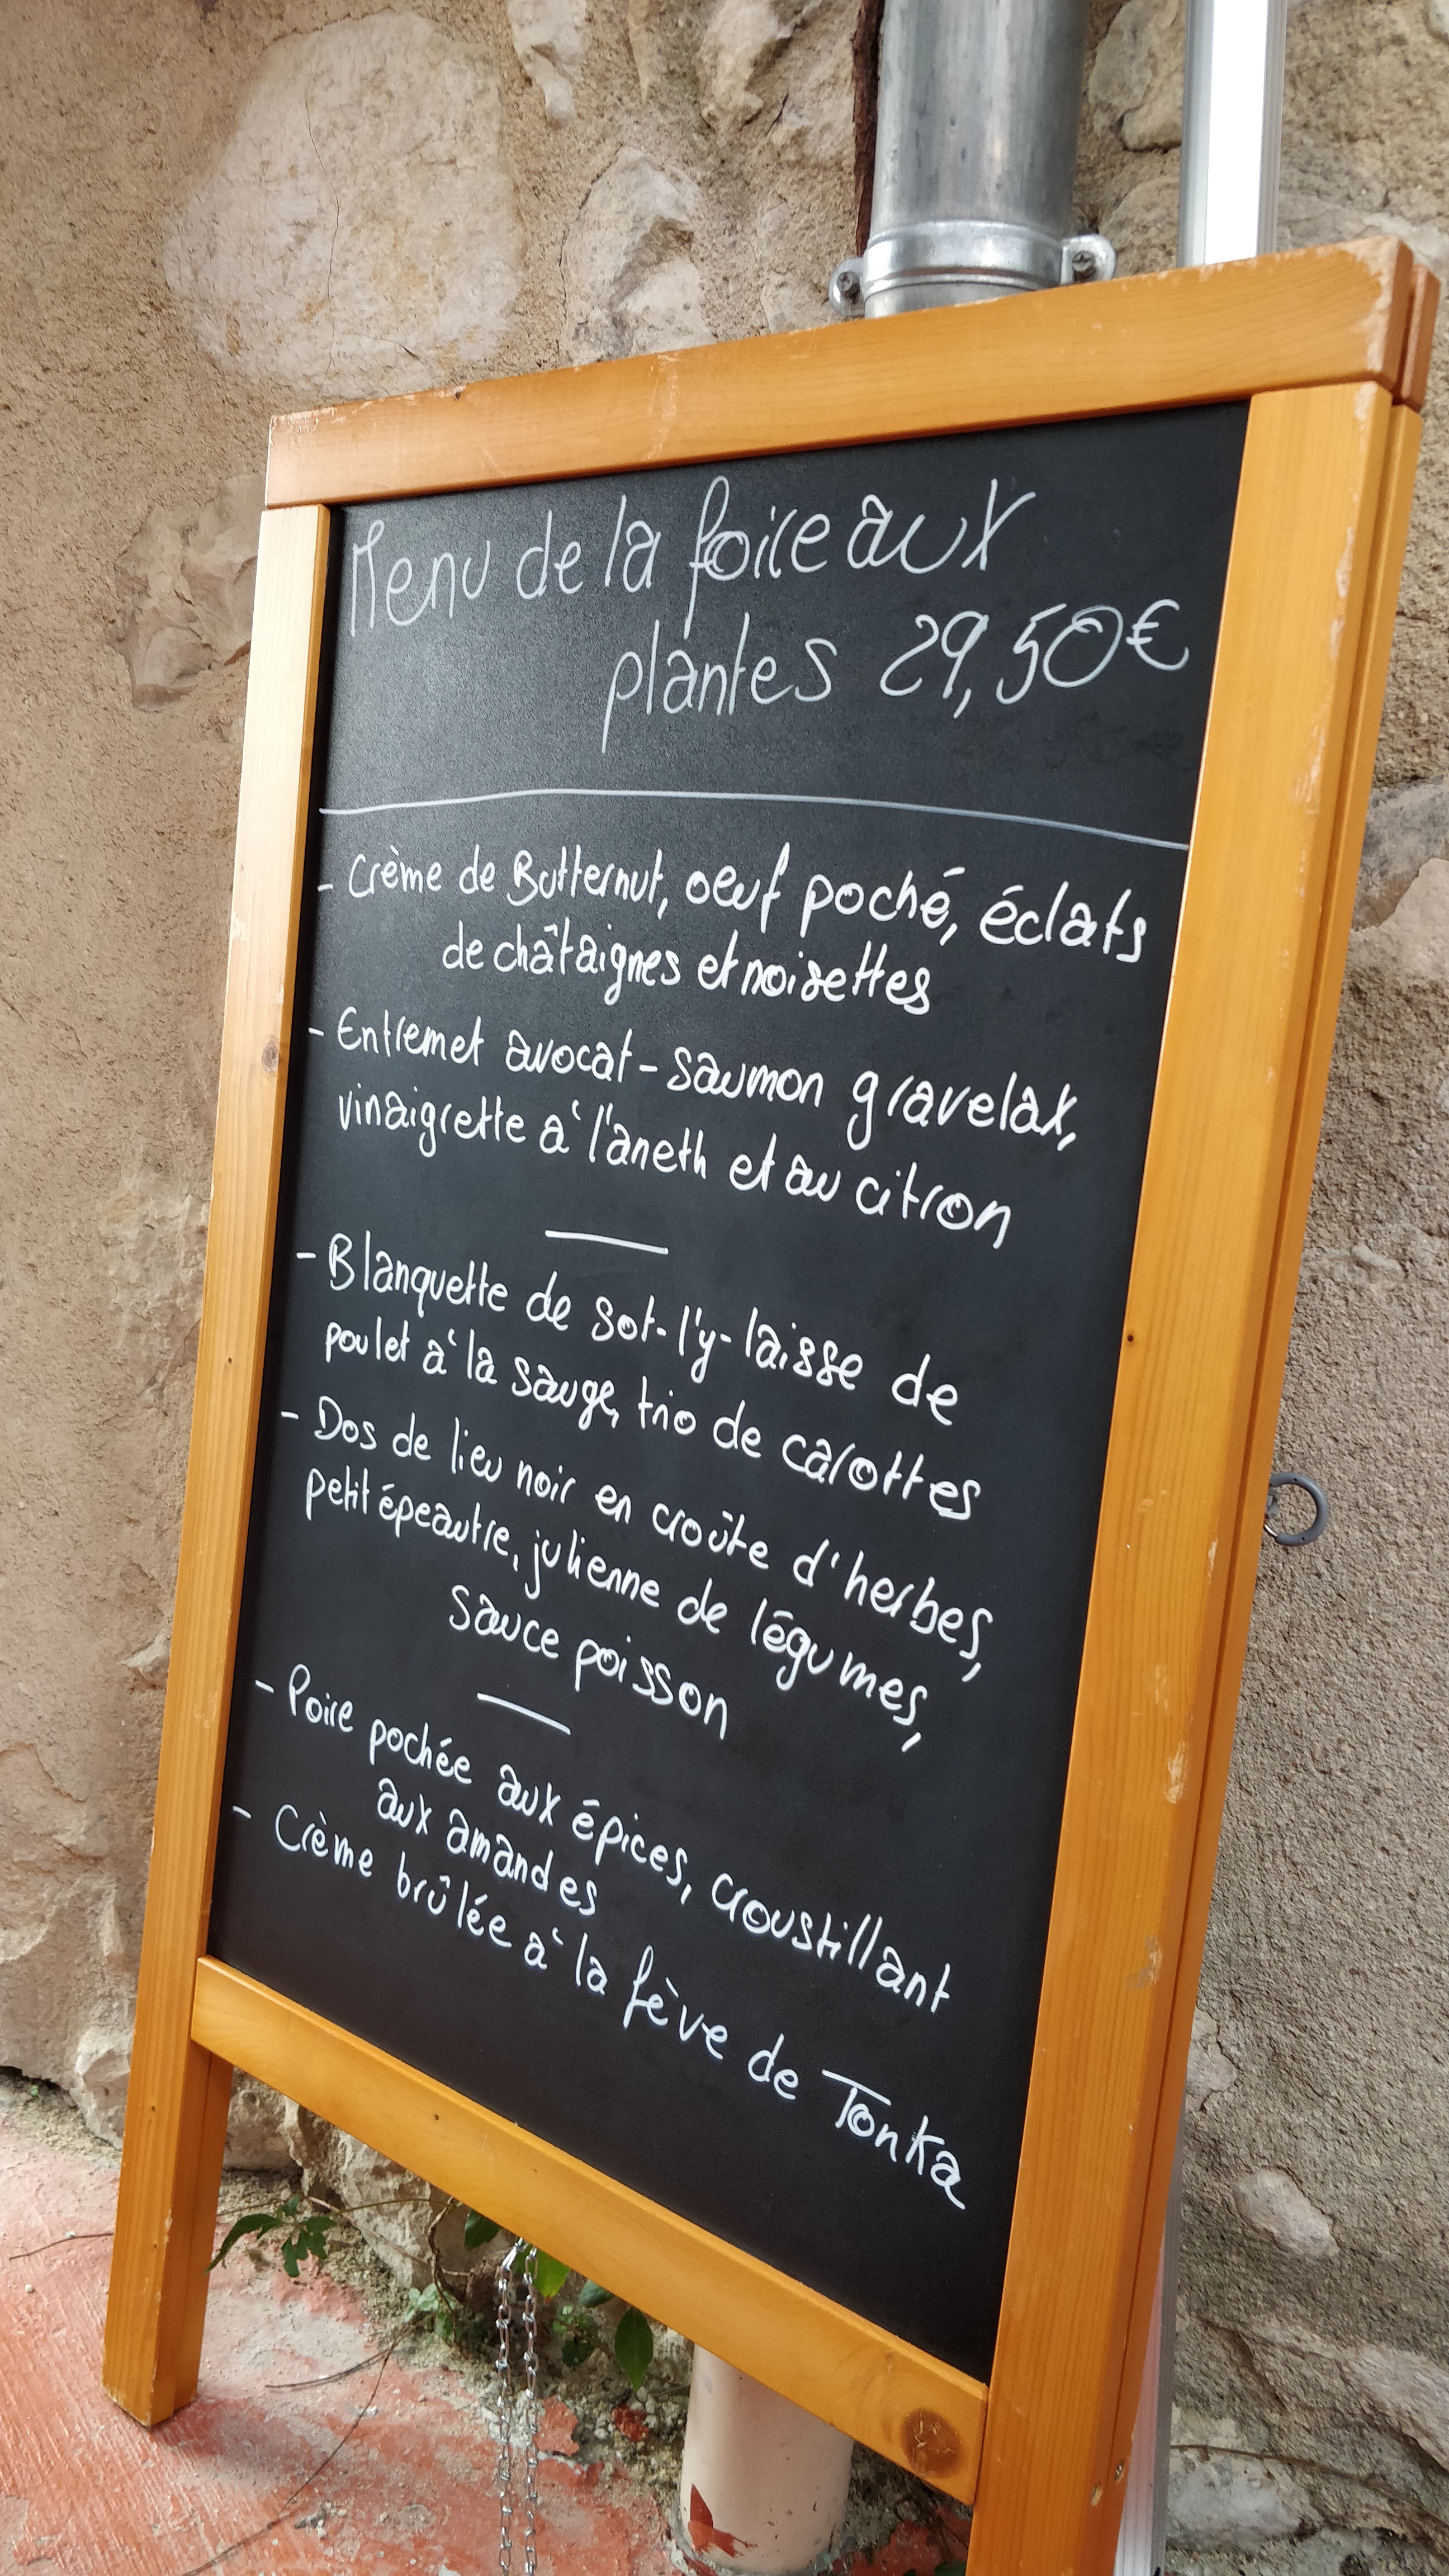 Menu de la foire aux
plantes 29,50€
- Crème de Butternut, oeuf poché, éclats
de châtaignes et noisettes
- Entremet avocat - saumon gravelax,
vinaigrette à l'aneth et au citron
- Blanquette de sot-l'y-laisse de
poulet à la sauge, trio de carottes
- Dos de lieu noir en croûte d'herbes,
petit épeautre, julienne de légumes,
sauce poisson
- Poire pochée aux épices, croustillant
aux amandes
- Crème brûlée à la fève de Tonka